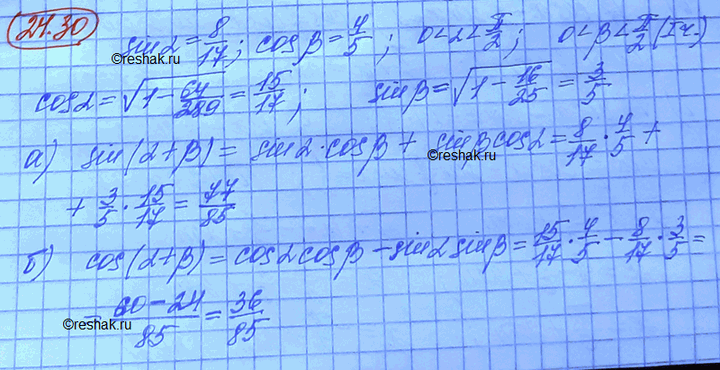 24.30
sin α = 8/17; cos β = 4/5; 0 < α < π/2; 0 < β < π/2 (I ч.)
©reshak.ru
cos α = √(1 − 64/289) = 15/17; sin β = √(1 − 16/25) = 3/5
а) sin(α + β) = sin α · cos β + sin β cos α = 8/17 · 4/5 +
©reshak.ru
+ 3/5 · 15/17 = 77/85
б) cos(α + β) = cos α cos β − sin α sin β = 15/17 · 4/5 − 8/17 · 3/5 =
= (60 − 24)/85 = 36/85
©reshak.ru